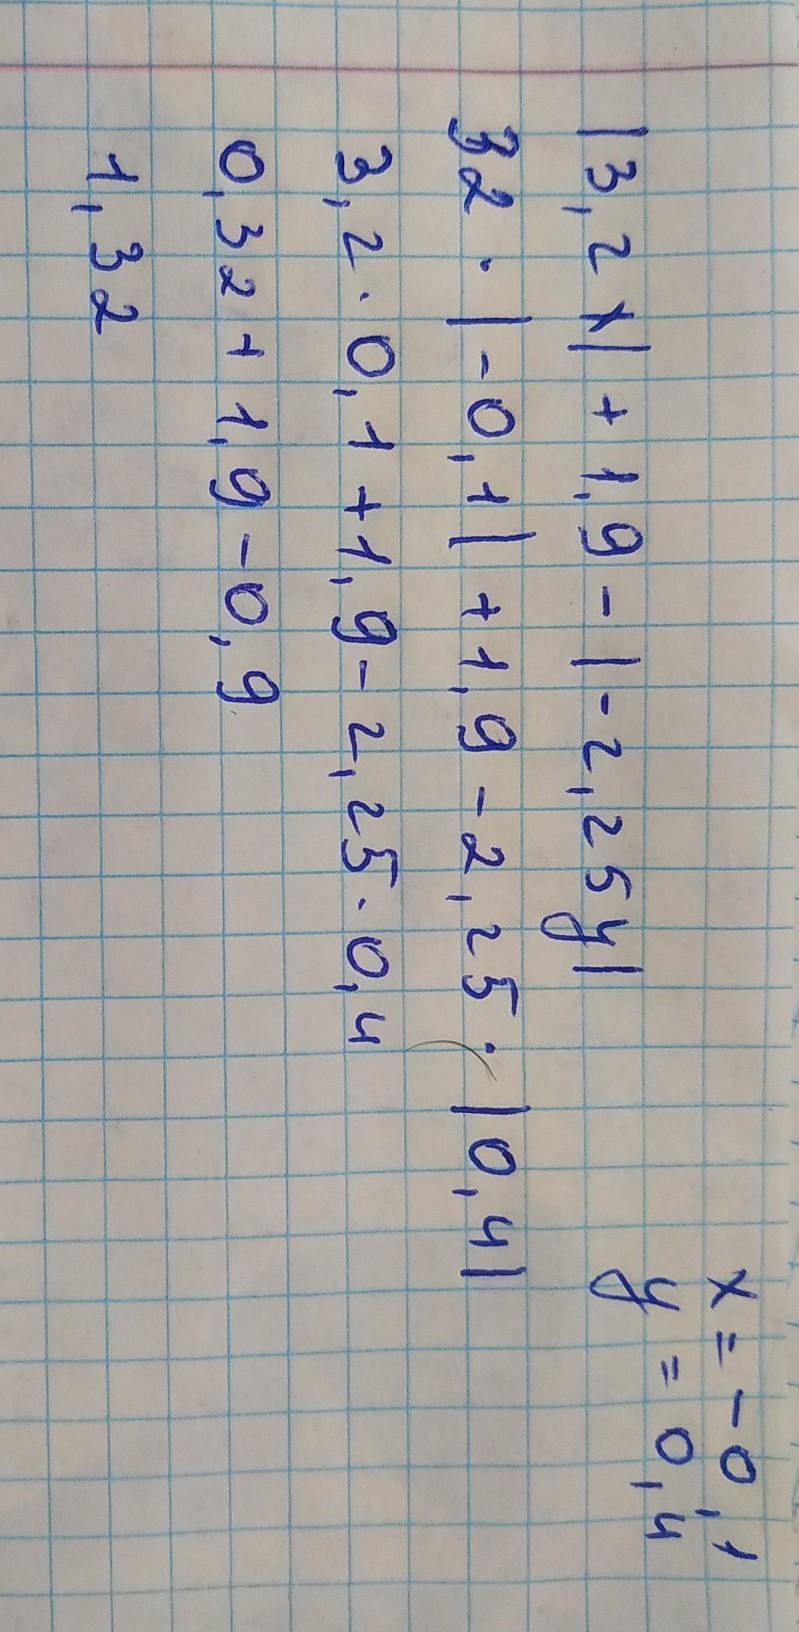 x = -0,1
y = 0,4
|3,2x| + 1,9 - |-2,25y|
32 · |-0,1| + 1,9 - 2,25 · |0,4|
3,2 · 0,1 + 1,9 - 2,25 · 0,4
0,32 + 1,9 - 0,9
1,32